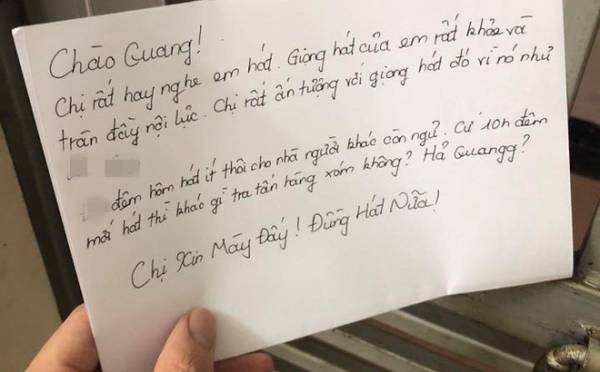 Chào Quang!
Chị rất hay nghe em hát. Giọng hát của em rất khỏe và
tràn đầy nội lực. Chị rất ấn tượng với giọng hát đó vì nó như
đêm hôm hát ít thôi cho nhà người khác còn ngủ. Cứ 10h đêm
mới hát thì khác gì tra tấn hàng xóm không? Hả Quangg?
Chị Xin Mày Đấy! Đừng Hát Nữa!